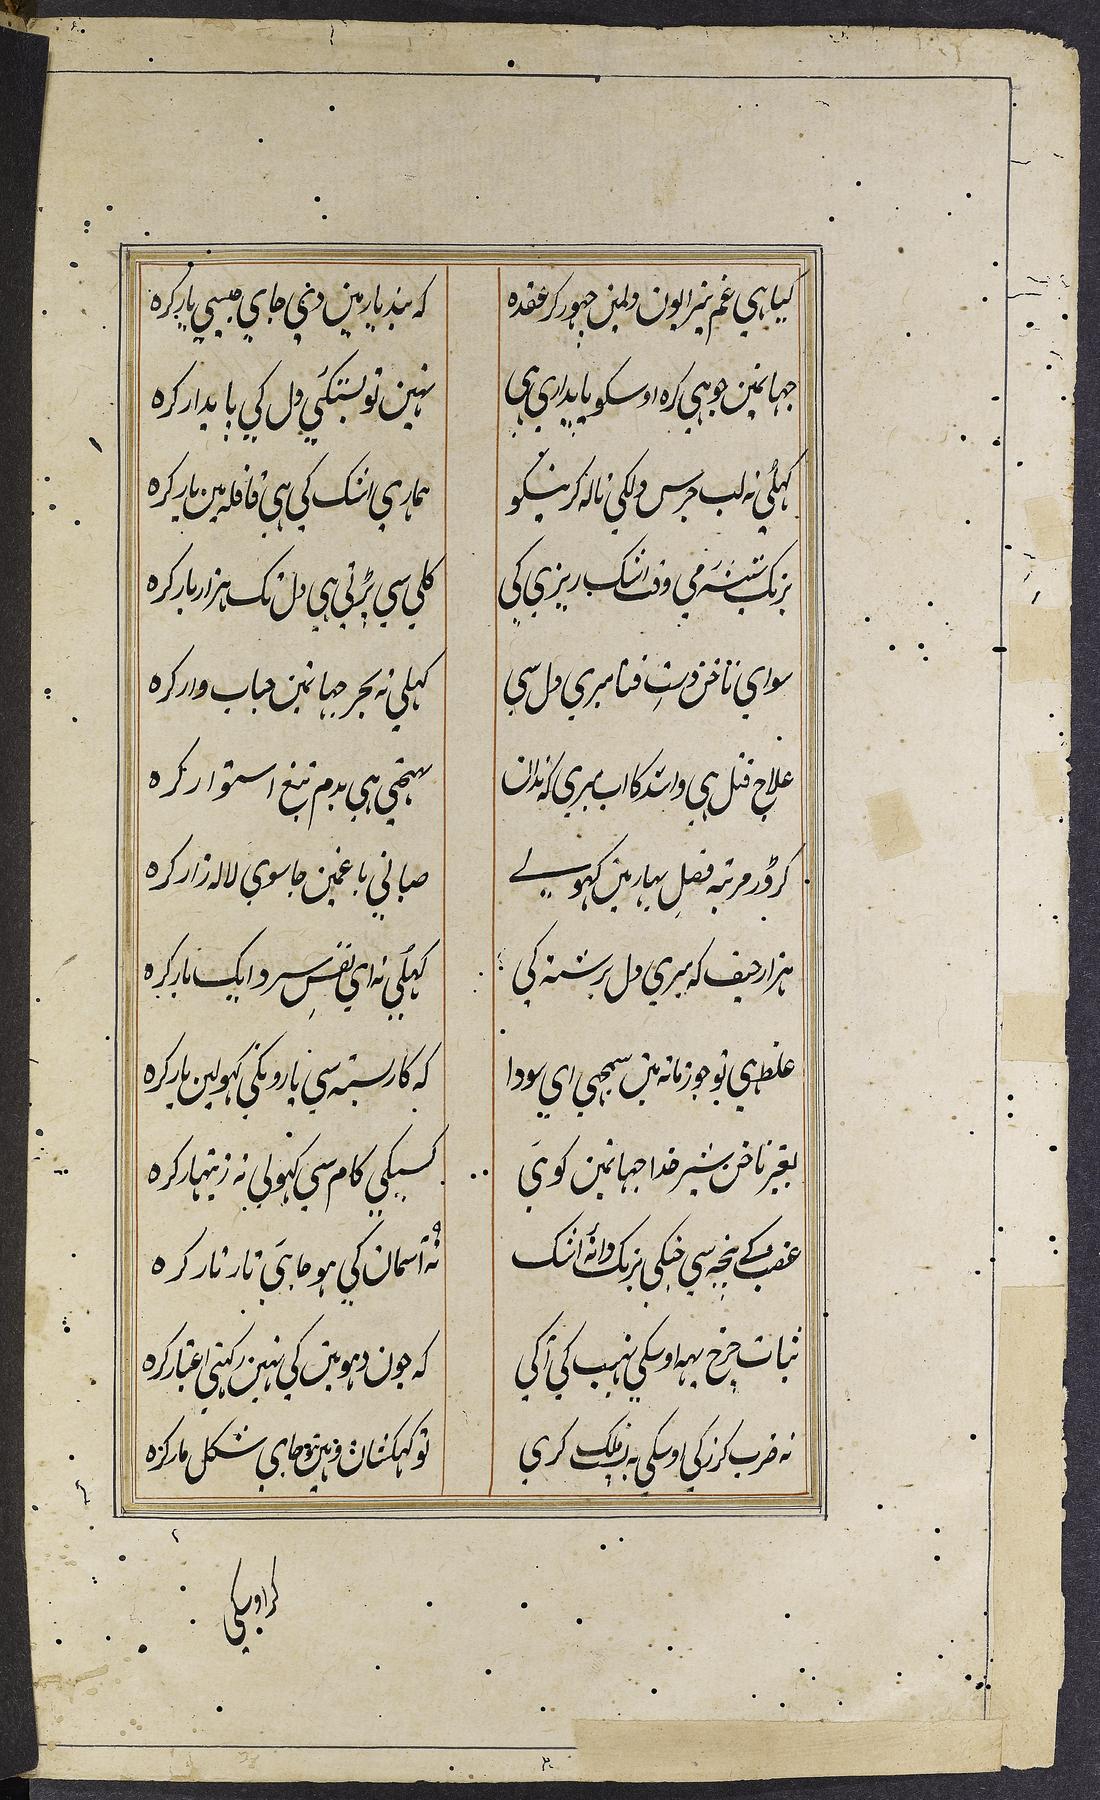 کیا ہی غم نیز ایون دلمین چہور کر عقدہ
کہ بند یارمین دنی جای جیسی یار کرہ
جہانمین جو ہی کرہ اوسکو پایداری ہی
نہین تو بستکیٔ دل کی پایدار کرہ
کہلی نہ لب جرس دلکی نالہ کرنیکو
ہماری اشک کی ہی قافلہ مین یار کرہ
برنک شیشہ می وقت اشک ریزی کی
کلی سی پڑتی ہی دل تک ہزار بار کرہ
سوای ناخن دستِ فنا میری دل سی
کہلی نہ بحر جہانمین حباب وار کرہ
علاج قتل ہی واشد کا اب میری کہ ندان
پہنچی ہی بدم تیغ استوار کرہ
کرور مرتبہ فصلِ بہار مین کہولے
صبا نی باغمین جا سوی لالہ زار کرہ
ہزار حیف کہ میری دل برشتہ کی
کہلی نہ ای نفسِ سرد ایک بار کرہ
غلط ہی تو جو زمانہ مین سمجہی ای سودا
کہ کار بستہ سی یارونکی کہولین یار کرہ
بغیر ناخن شیر خدا جہانمین کوئی
کسیکی کام سی کہولی نہ زینہار کرہ
غضب کے پنجہ سی جسکی برنک دانۂ اشک
نہ آسمان کی ہو جائی تار تار کرہ
ثبات چرخ یہہ اوسکی نہیب کی آکی
کہ جون دہوین کی نہین رکہتی اعتبار کرہ
نہ ضرب کرز کی اوسکی یہ فلک کری
تو کہکشان وہین ہو جای شکل مار کرہ
کر اوسکی